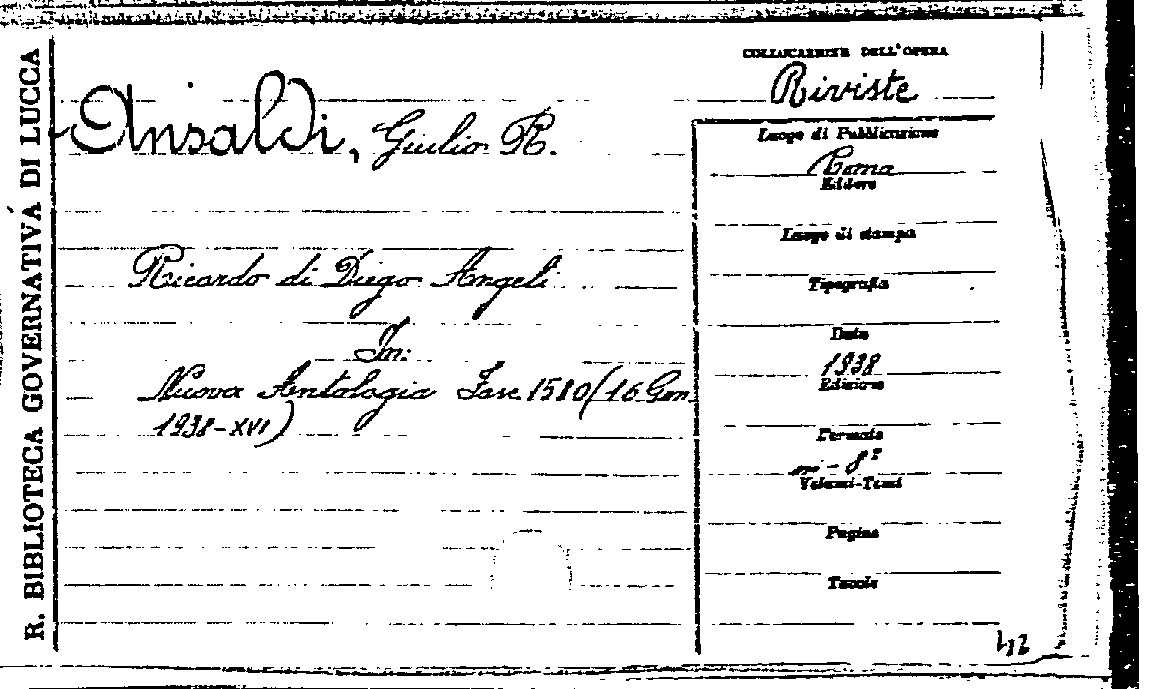 R. BIBLIOTECA GOVERNATIVA DI LUCCA
Ansaldi, Giulio R.
Ricordo di Diego Angeli
In:
Nuova Antologia Fasc. 1580 (16 Gen.
1938-XVI)
COLLOCAZIONE DELL'OPERA
Riviste
Luogo di Pubblicazione
Roma
Editore
Luogo di stampa
Tipografia
Data
1938
Edizione
Formato
in-8º
Volumi-Tomi
Pagine
Tavole